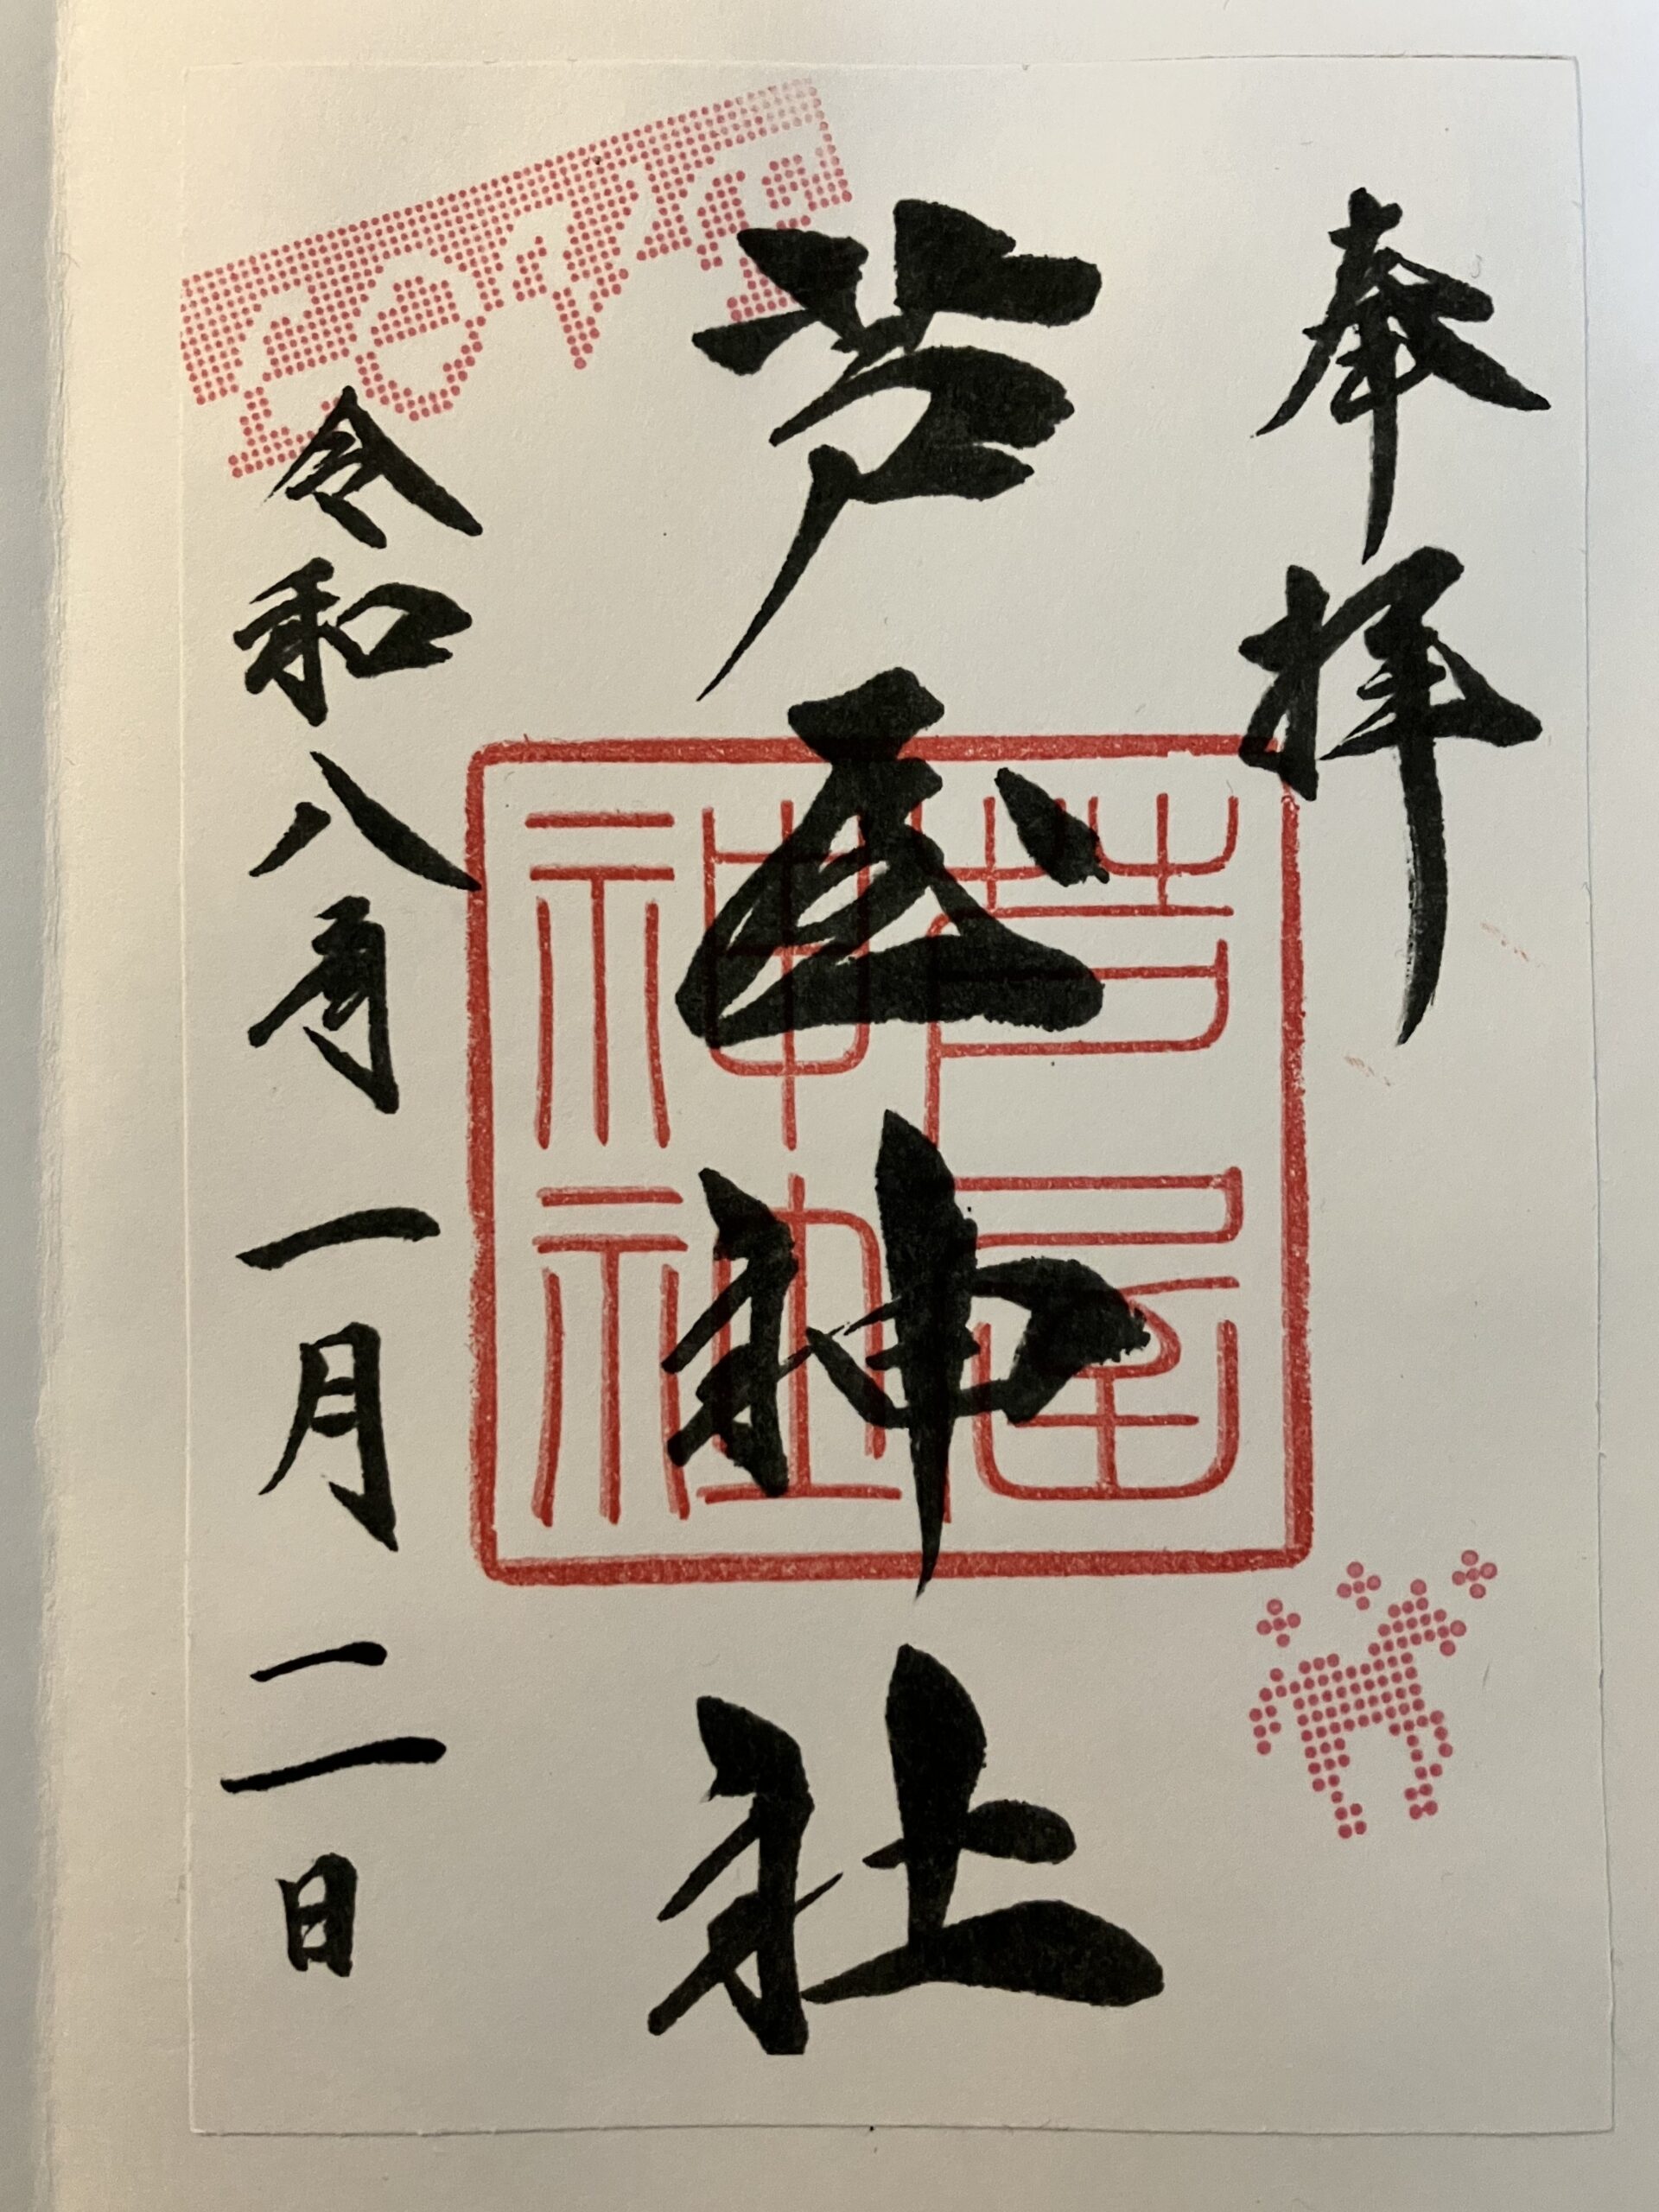 奉拝
芦屋神社
芦屋
神社
令和八年一月二日